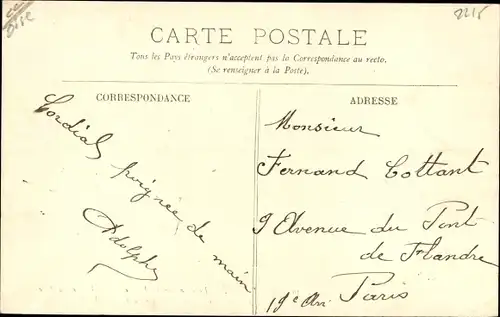 Oise
2215
CARTE POSTALE
Tous les Pays étrangers n'acceptent pas la Correspondance au recto.
(Se renseigner à la Poste).
CORRESPONDANCE
Cordial poignée de main
Adolphe
ADRESSE
Monsieur
Fernand Cottant
9 Avenue du Pont
de Flandre
19e Arr. Paris